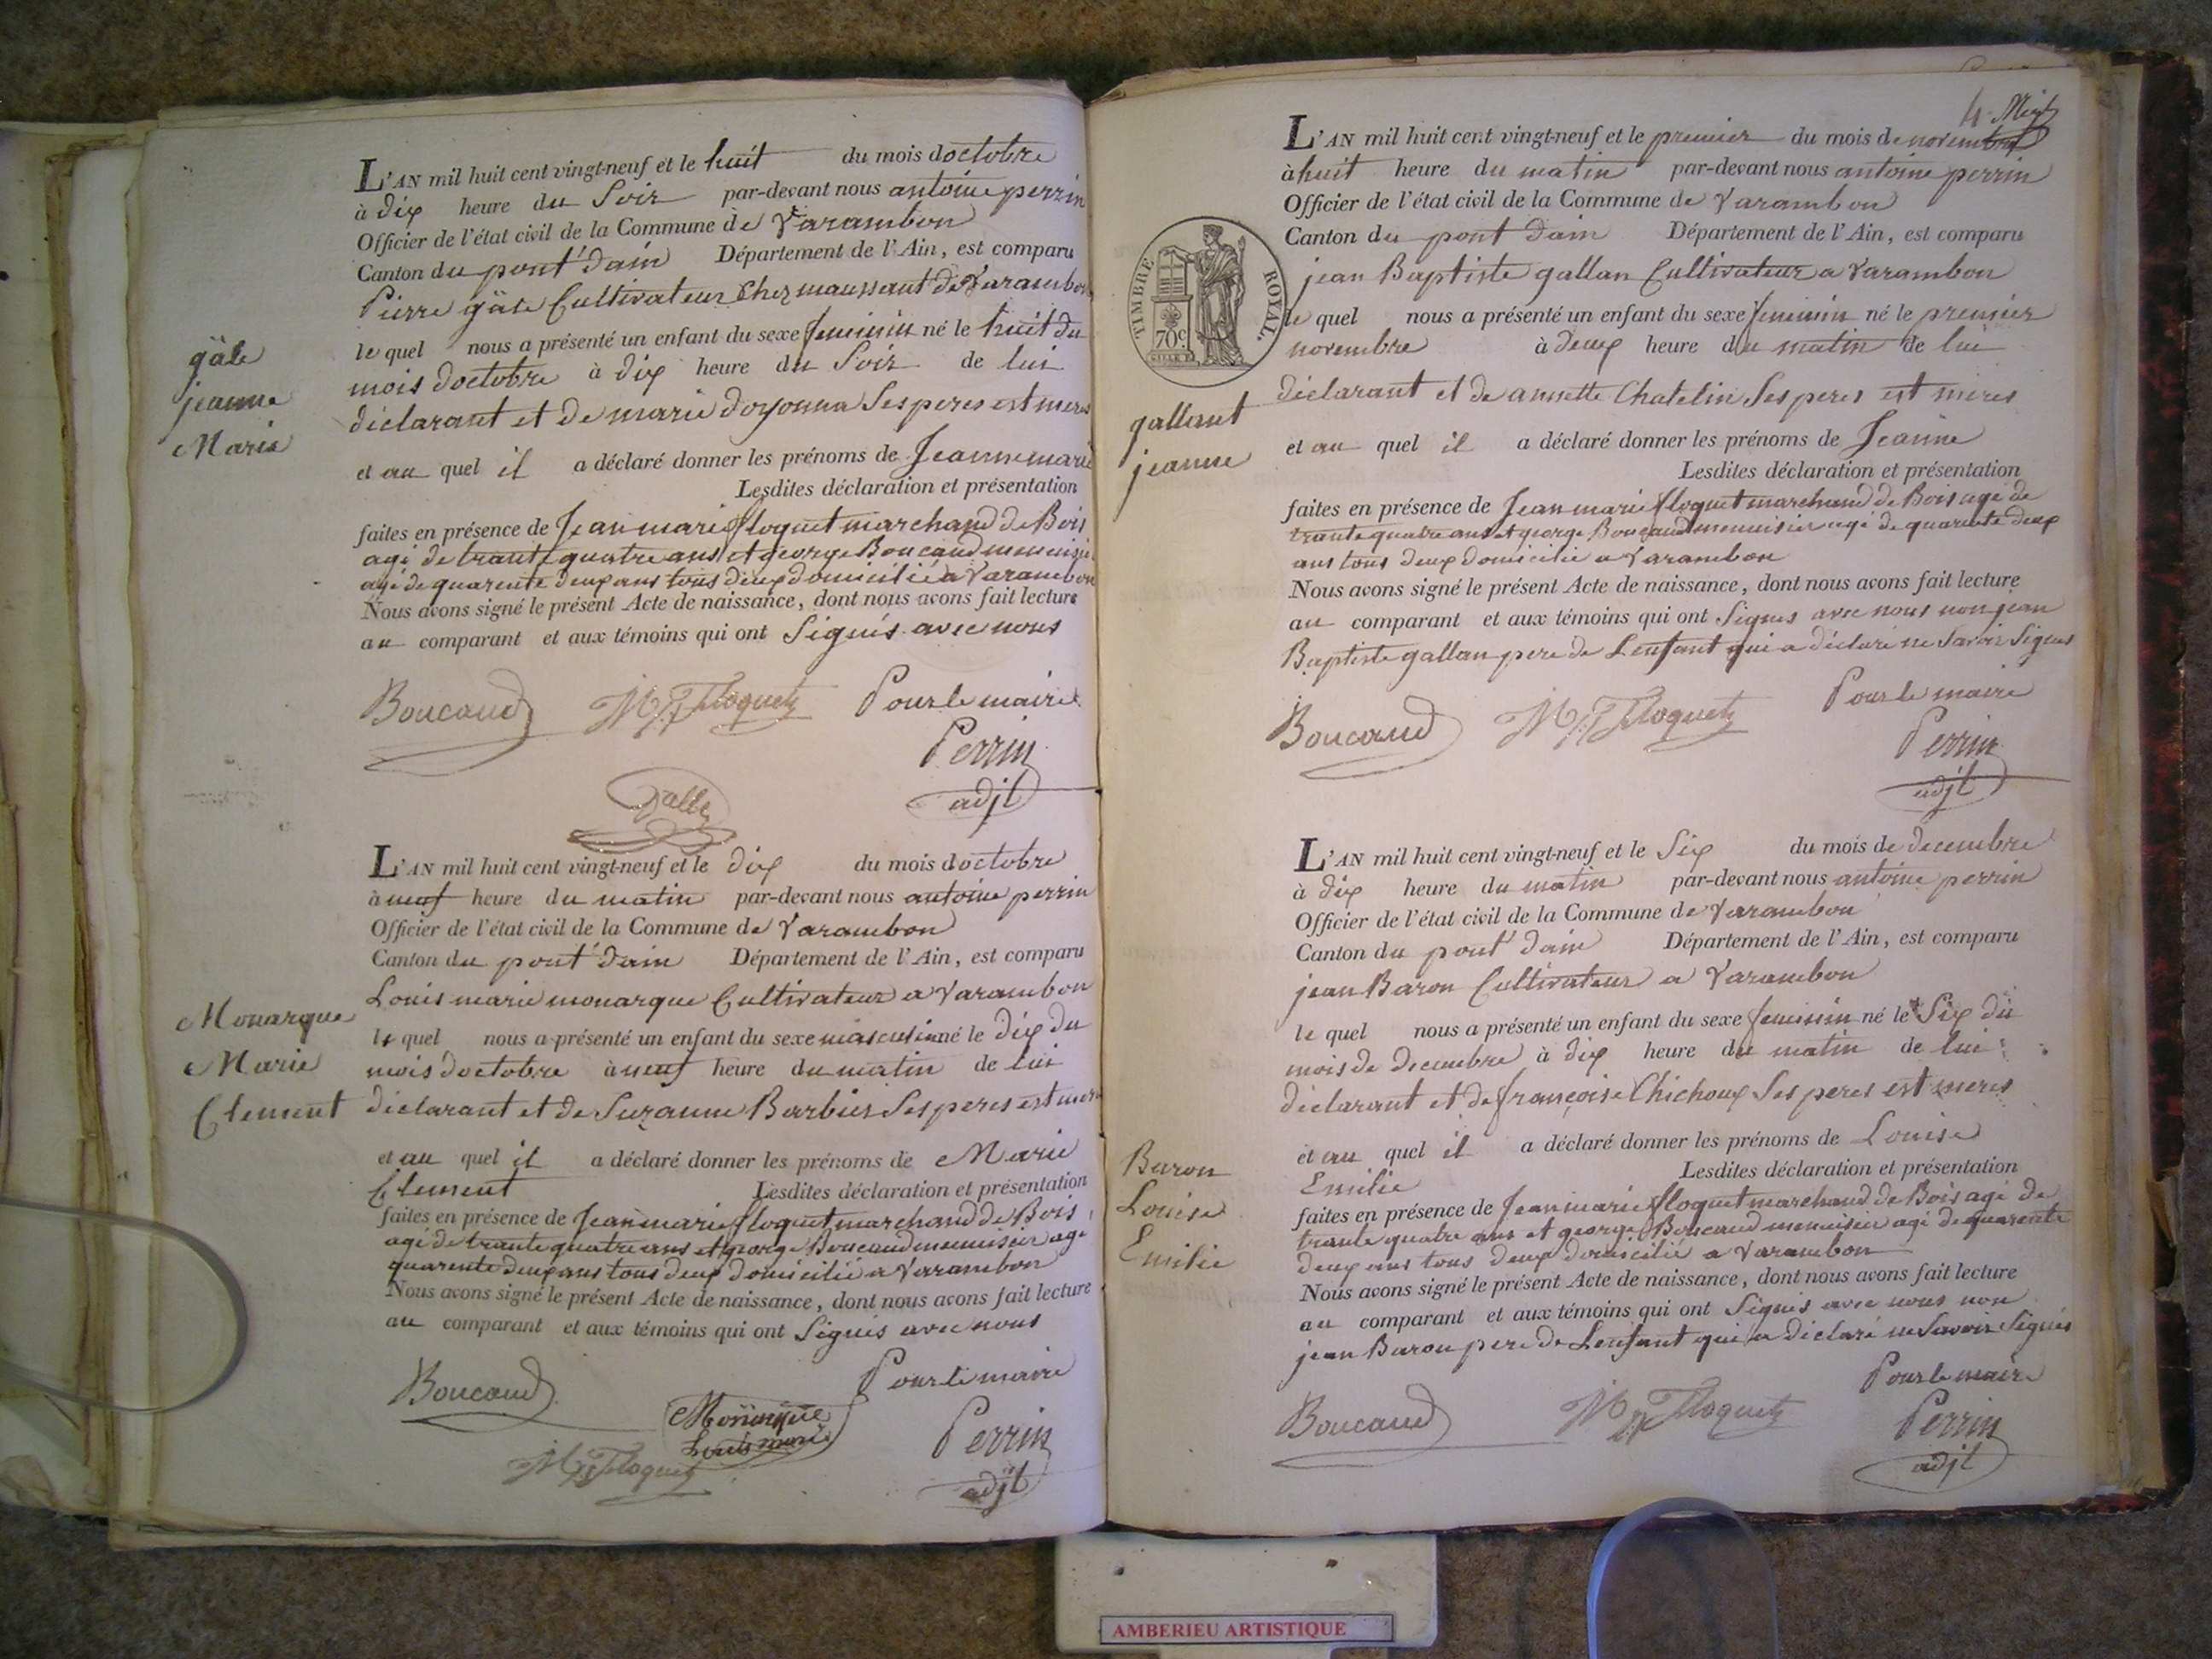 L'AN mil huit cent vingt-neuf et le huit du mois doctobre
à dix heure du Soir par-devant nous antoine perrin
Officier de l'état civil de la Commune de Varambon
Canton du pont d'ain Département de l'Ain, est comparu
Pierre gäle Cultivateur Chez maussant de Varambon
le quel nous a présenté un enfant du sexe feminin né le huit du
mois doctobre à dix heure du Soir de lui
déclarant et de marie doyonna Ses peres est meres
gäle
jeanne
Marie
et au quel il a déclaré donner les prénoms de Jeanne marie
Lesdites déclaration et présentation
faites en présence de Jean marie floquet marchand de Bois
agé de trante quatre ans et george Boucaud menuisier
agé de quarente deux ans tous deux domicilié a Varambon
Nous avons signé le présent Acte de naissance, dont nous avons fait lecture
au comparant et aux témoins qui ont Signés avec nous
Boucaud Floquet Pour le maire
Perrin
adjt
Galle
L'AN mil huit cent vingt-neuf et le dix du mois doctobre
à neuf heure du matin par-devant nous antoine perrin
Officier de l'état civil de la Commune de Varambon
Canton du pont d'ain Département de l'Ain, est comparu
Louis marie monarque Cultivateur a Varambon
le quel nous a présenté un enfant du sexe masculin né le dix du
mois doctobre à neuf heure du matin de lui
déclarant et de Suzanne Barbier Ses peres est meres
Monarque
Marie
Clement
et au quel il a déclaré donner les prénoms de Marie
Clement Lesdites déclaration et présentation
faites en présence de Jean marie floquet marchand de Bois
agé de trante quatre ans et george Boucaud menuisier agé
quarente deux ans tous deux domicilié a Varambon
Nous avons signé le présent Acte de naissance, dont nous avons fait lecture
au comparant et aux témoins qui ont Signés avec nous
Boucaud Pour le maire
Monarque
Louis marie
Floquet Perrin
adjt
L'AN mil huit cent vingt-neuf et le premier du mois de novembre
à huit heure du matin par-devant nous antoine perrin
Officier de l'état civil de la Commune de Varambon
Canton du pont dain Département de l'Ain, est comparu
jean Baptiste gallan Cultivateur a Varambon
TIMBRE ROYAL.
70c
le quel nous a présenté un enfant du sexe feminin né le premier
novembre à deux heure du matin de lui
déclarant et de annette Chatelin Ses peres est mères
gallant
jeanne
et au quel il a déclaré donner les prénoms de Jeanne
Lesdites déclaration et présentation
faites en présence de Jean marie floquet marchand de Bois agé de
trante quatre ans et george Boucaud menuisier agé de quarente deux
ans tous deux domicilié a Varambon
Nous avons signé le présent Acte de naissance, dont nous avons fait lecture
au comparant et aux témoins qui ont Signés avec nous non jean
Baptiste gallan pere de Lenfant qui a déclaré ne Savoir Signer
Boucaud Floquet Pour le maire
Perrin
adjt
L'AN mil huit cent vingt-neuf et le Six du mois de decembre
à dix heure du matin par-devant nous antoine perrin
Officier de l'état civil de la Commune de Varambon
Canton du pont dain Département de l'Ain, est comparu
jean Baron Cultivateur a Varambon
le quel nous a présenté un enfant du sexe feminin né le Six du
mois de decembre à dix heure du matin de lui
déclarant et de françoise Chichoux Ses peres est meres
Baron
Louise
Emilie
et au quel il a déclaré donner les prénoms de Louise
Emilie Lesdites déclaration et présentation
faites en présence de Jean marie floquet marchand de Bois agé de
trante quatre ans et george Boucaud menuisier agé de quarente
deux ans tous deux domicilié a Varambon
Nous avons signé le présent Acte de naissance, dont nous avons fait lecture
au comparant et aux témoins qui ont Signés avec nous non
jean Baron pere de Lenfant qui a déclaré ne Savoir Signés
Boucaud Floquet Pour le maire
Perrin
adjt
AMBERIEU ARTISTIQUE